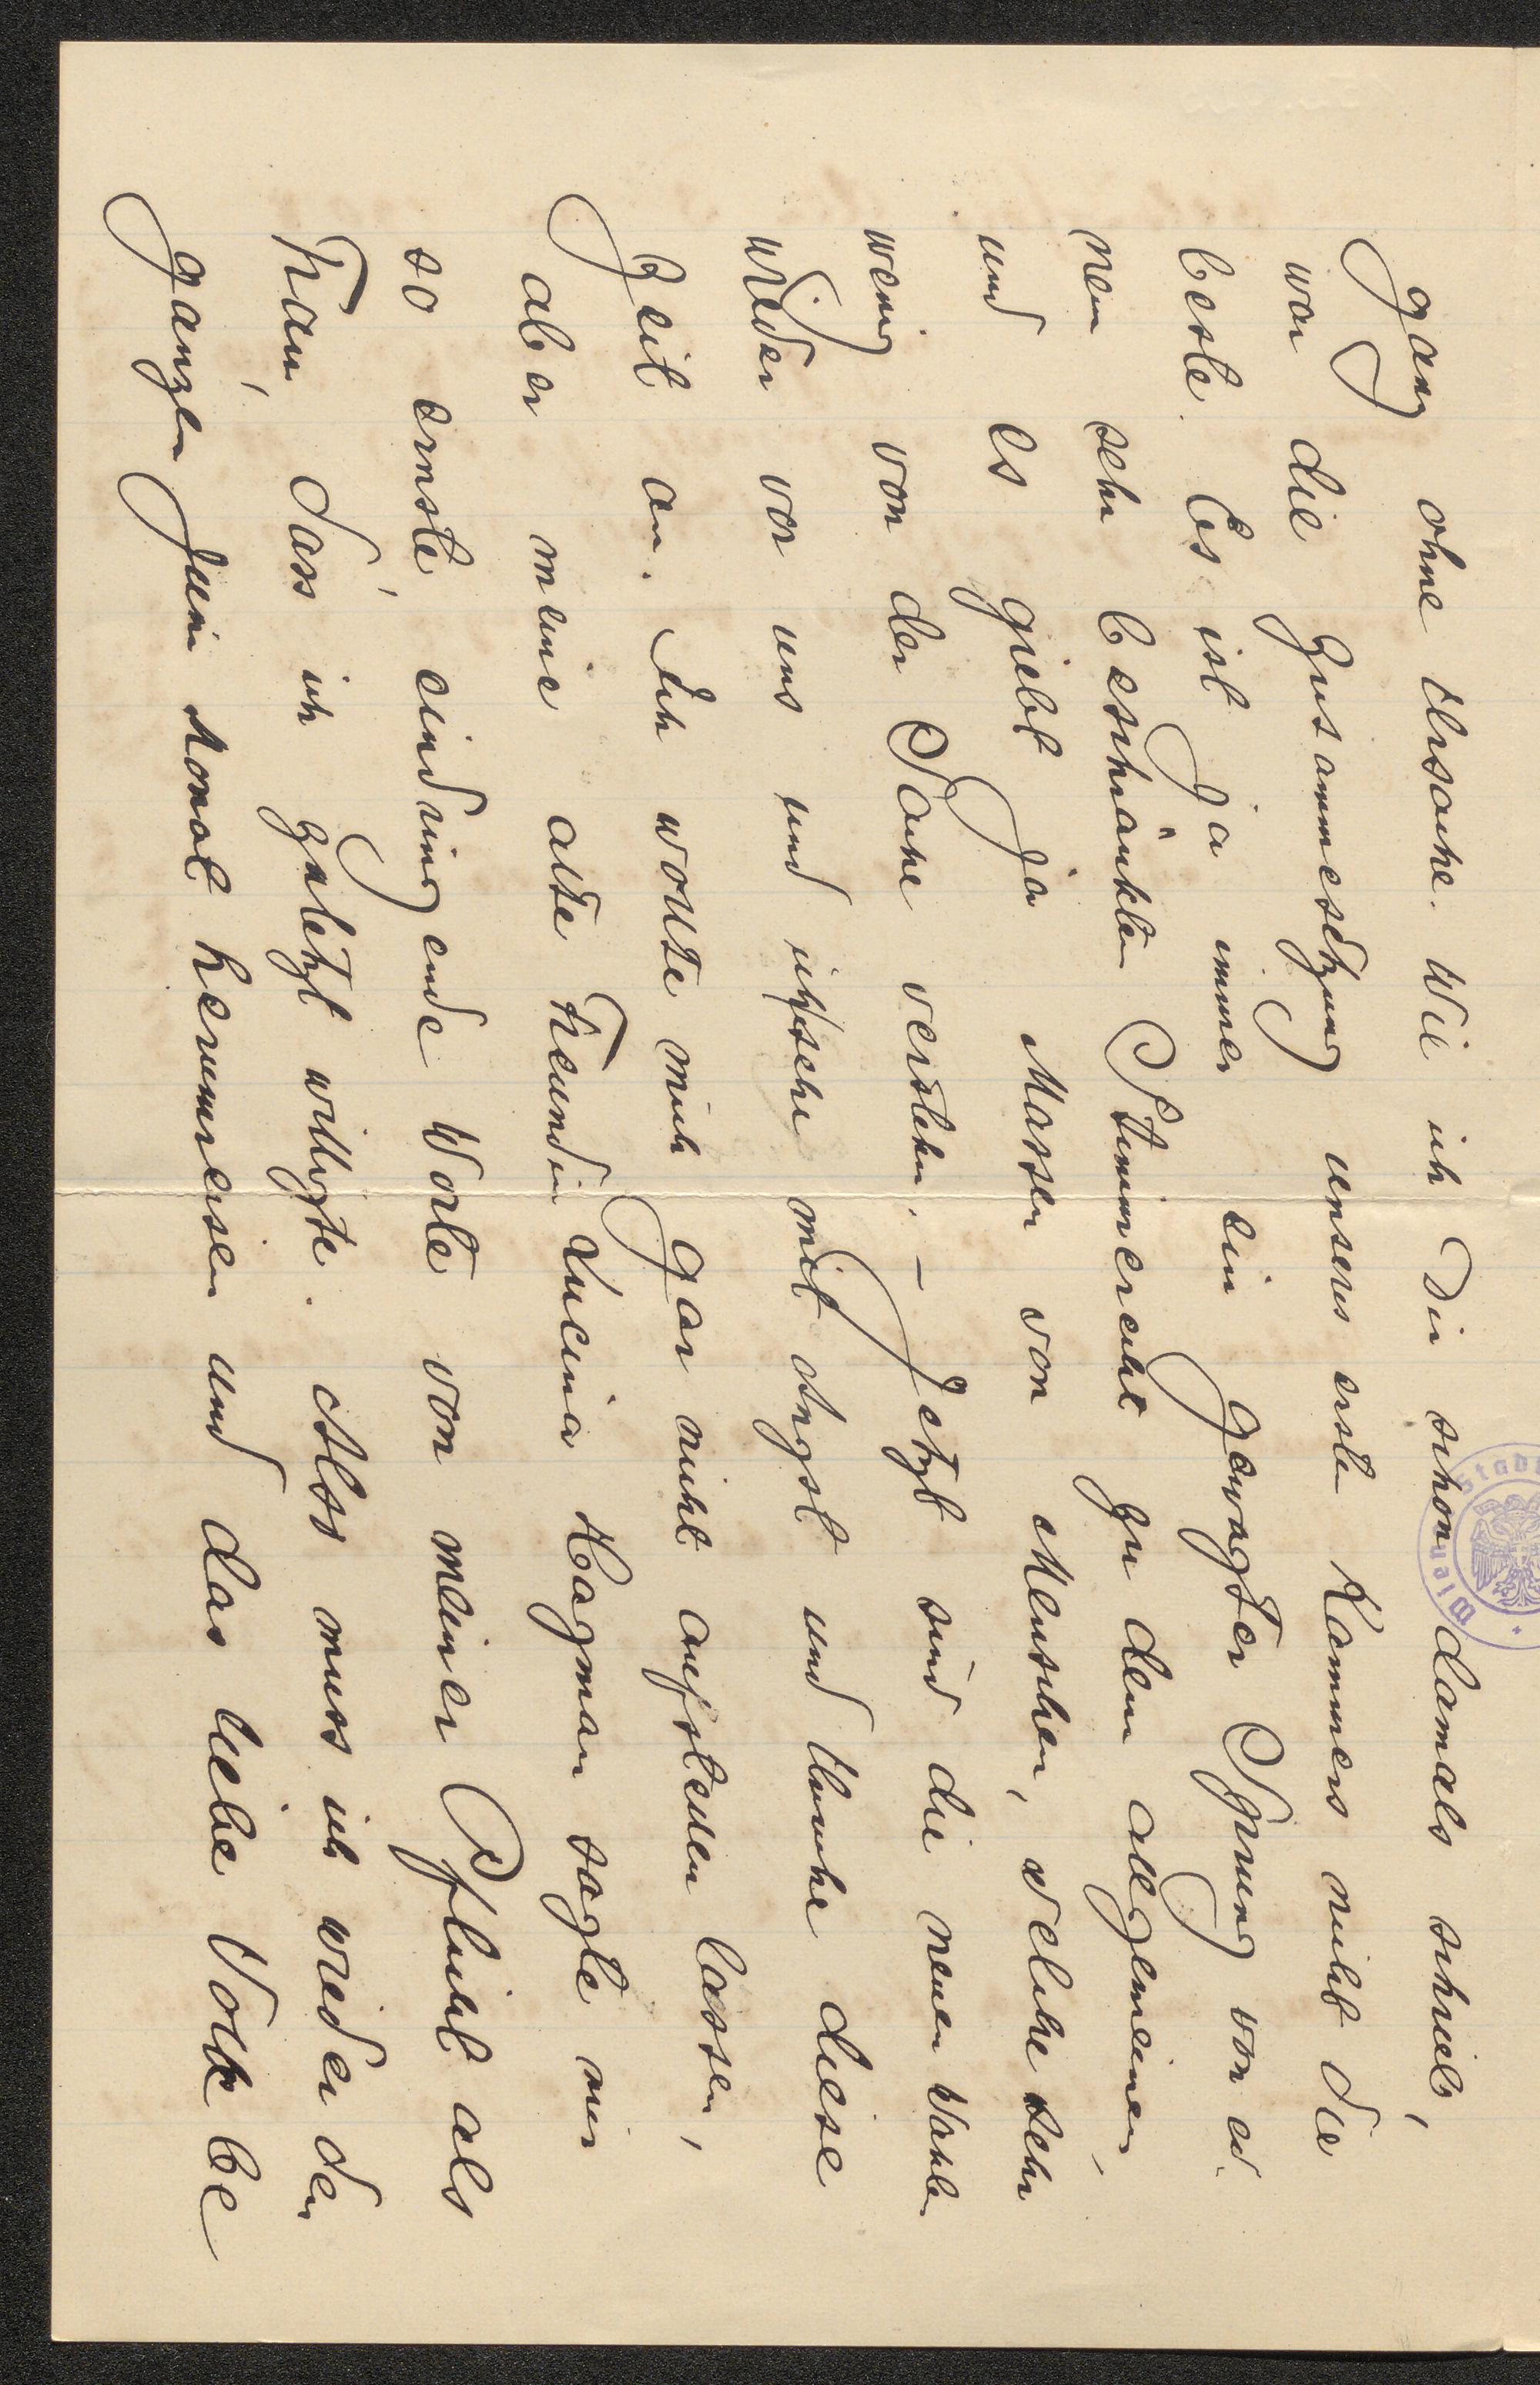 ganz ohne Ursache. Wie ich Dir schon damals schrieb,
war die Zusammesetzung unseres erste Kammers nicht die
beste. Es ist ja immer ein gewagter Sprung von ei
nem sehr beschränkten Stimmrecht zu dem allgemeinen,
und es giebt ja Massen von Menschen, welche sehr
wenig von der Sache verstehen. – Jetzt sind die neuen Wahlen
wieder vor uns und ich sehe mit Angst und Unruhe diese
Zeit an. Ich wollte mich gar nicht aufstellen lassen,
aber meine alte Freundin Lucina Hagman sagte mir
so ernste, eindringende Worte von meiner Pflicht als
Frau, dass ich zuletzt willigte. Also muss ich wieder den
ganzen Juni Monat herumreisen und das liebe Volk be
Stadt
Wien